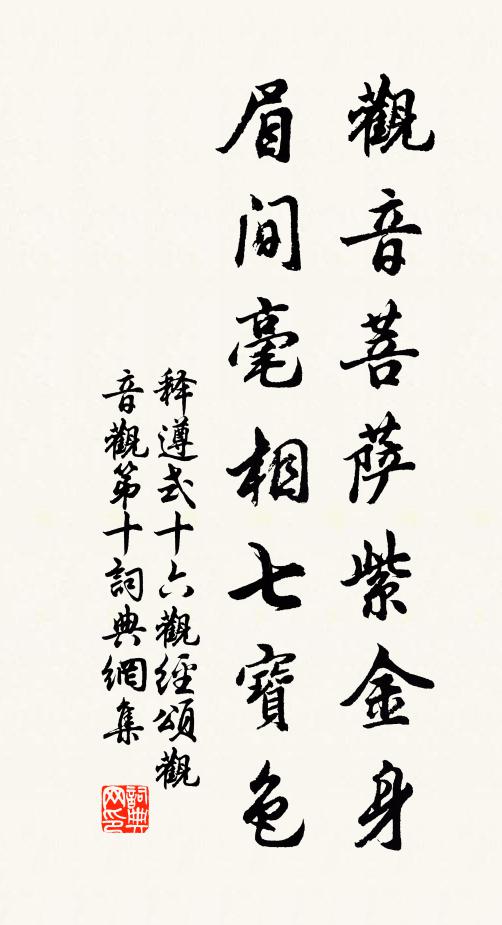 觀音菩薩紫金身
眉间毫相七寶色
释遵式十六觀經頌觀
音觀第十詞典網集
詞典网印